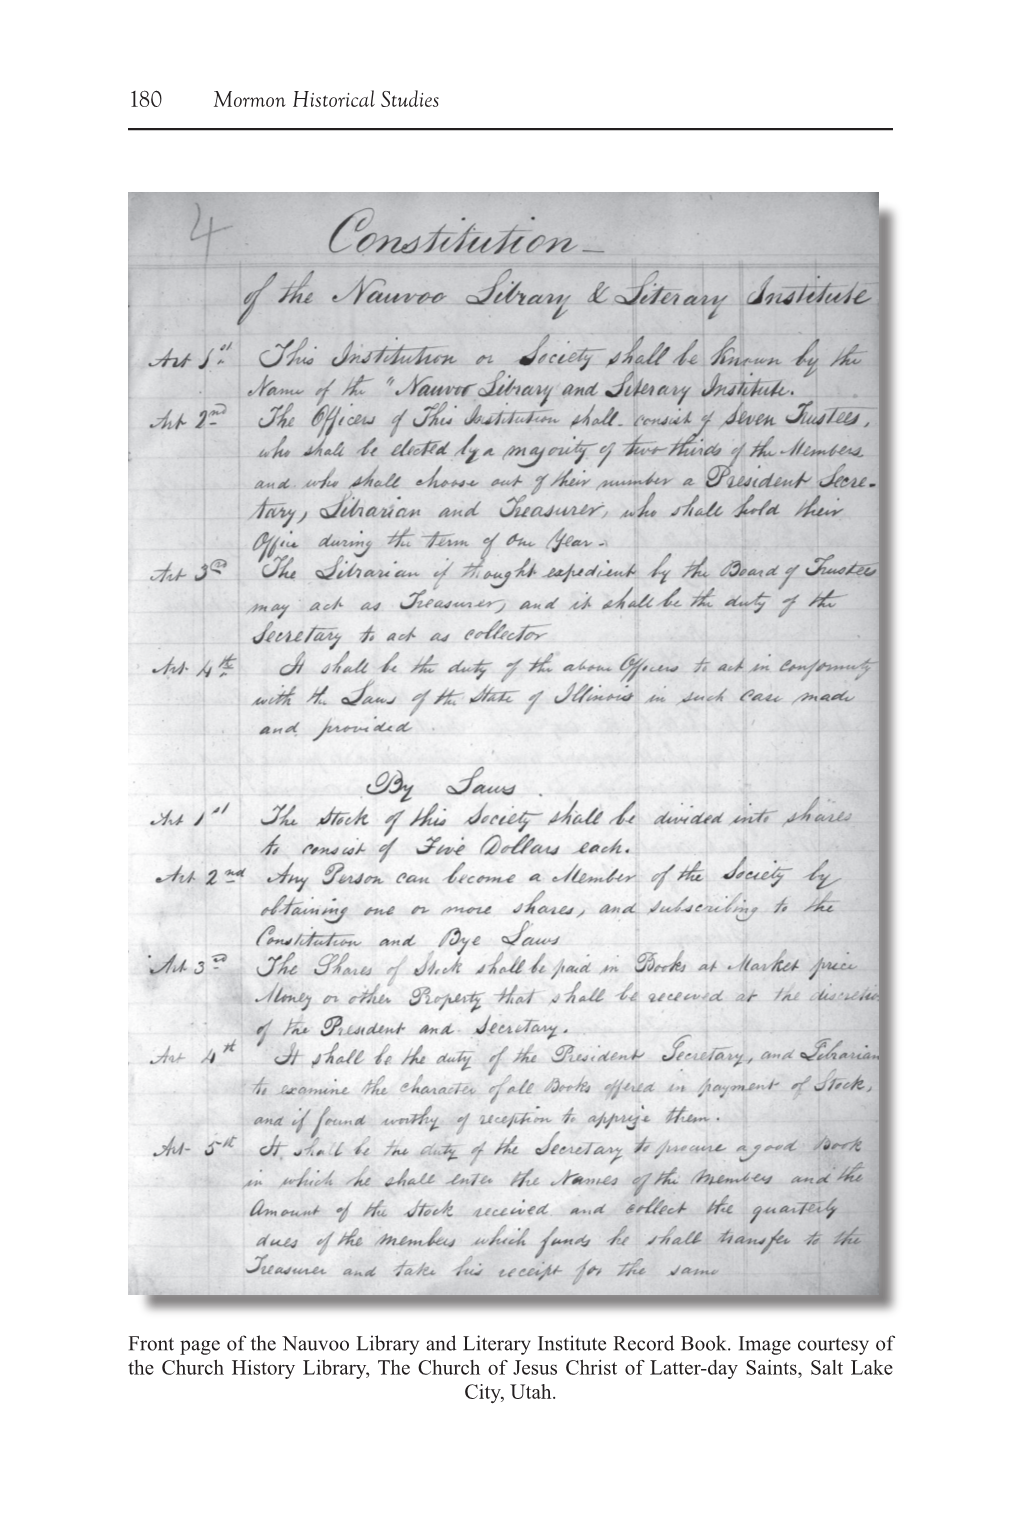 180 Mormon Historical Studies
4
Constitution –
of the Nauvoo Library & Literary Institute
Art 1st This Institution or Society shall be known by the
Name of the "Nauvoo Library and Literary Institute.
Art 2nd The Officers of This Institution shall consist of Seven Trustees,
who shall be elected by a majority of two thirds of the Members
and who shall choose out of their number a President Secre-
tary, Librarian and Treasurer, who shall hold their
Office during the term of One Year.
Art 3rd The Librarian if thought expedient by the Board of Trustees
may act as Treasurer, and it shall be the duty of the
Secretary to act as collector
Art 4th It shall be the duty of the above Officers to act in conformity
with the Laws of the State of Illinois in such case made
and provided
By Laws.
Art 1st The Stock of this Society shall be divided into shares
to consist of Five Dollars each.
Art 2nd Any Person can become a Member of the Society by
obtaining one or more shares, and subscribing to the
Constitution and Bye Laws
Art 3rd The Shares of Stock shall be paid in Books at Market price
Money or other Property that shall be received at the discretio
of the President and Secretary.
Art 4th It shall be the duty of the President Secretary, and Librarian
to examine the character of all Books offered in payment of Stock,
and if found worthy of reception to apprize them.
Art 5th It shall be the duty of the Secretary to procure a good Book
in which he shall enter the Names of the Members and the
Amount of the Stock received and collect the quarterly
dues of the members which funds he shall transfer to the
Treasurer and take his receipt for the same
Front page of the Nauvoo Library and Literary Institute Record Book. Image courtesy of
the Church History Library, The Church of Jesus Christ of Latter-day Saints, Salt Lake
City, Utah.